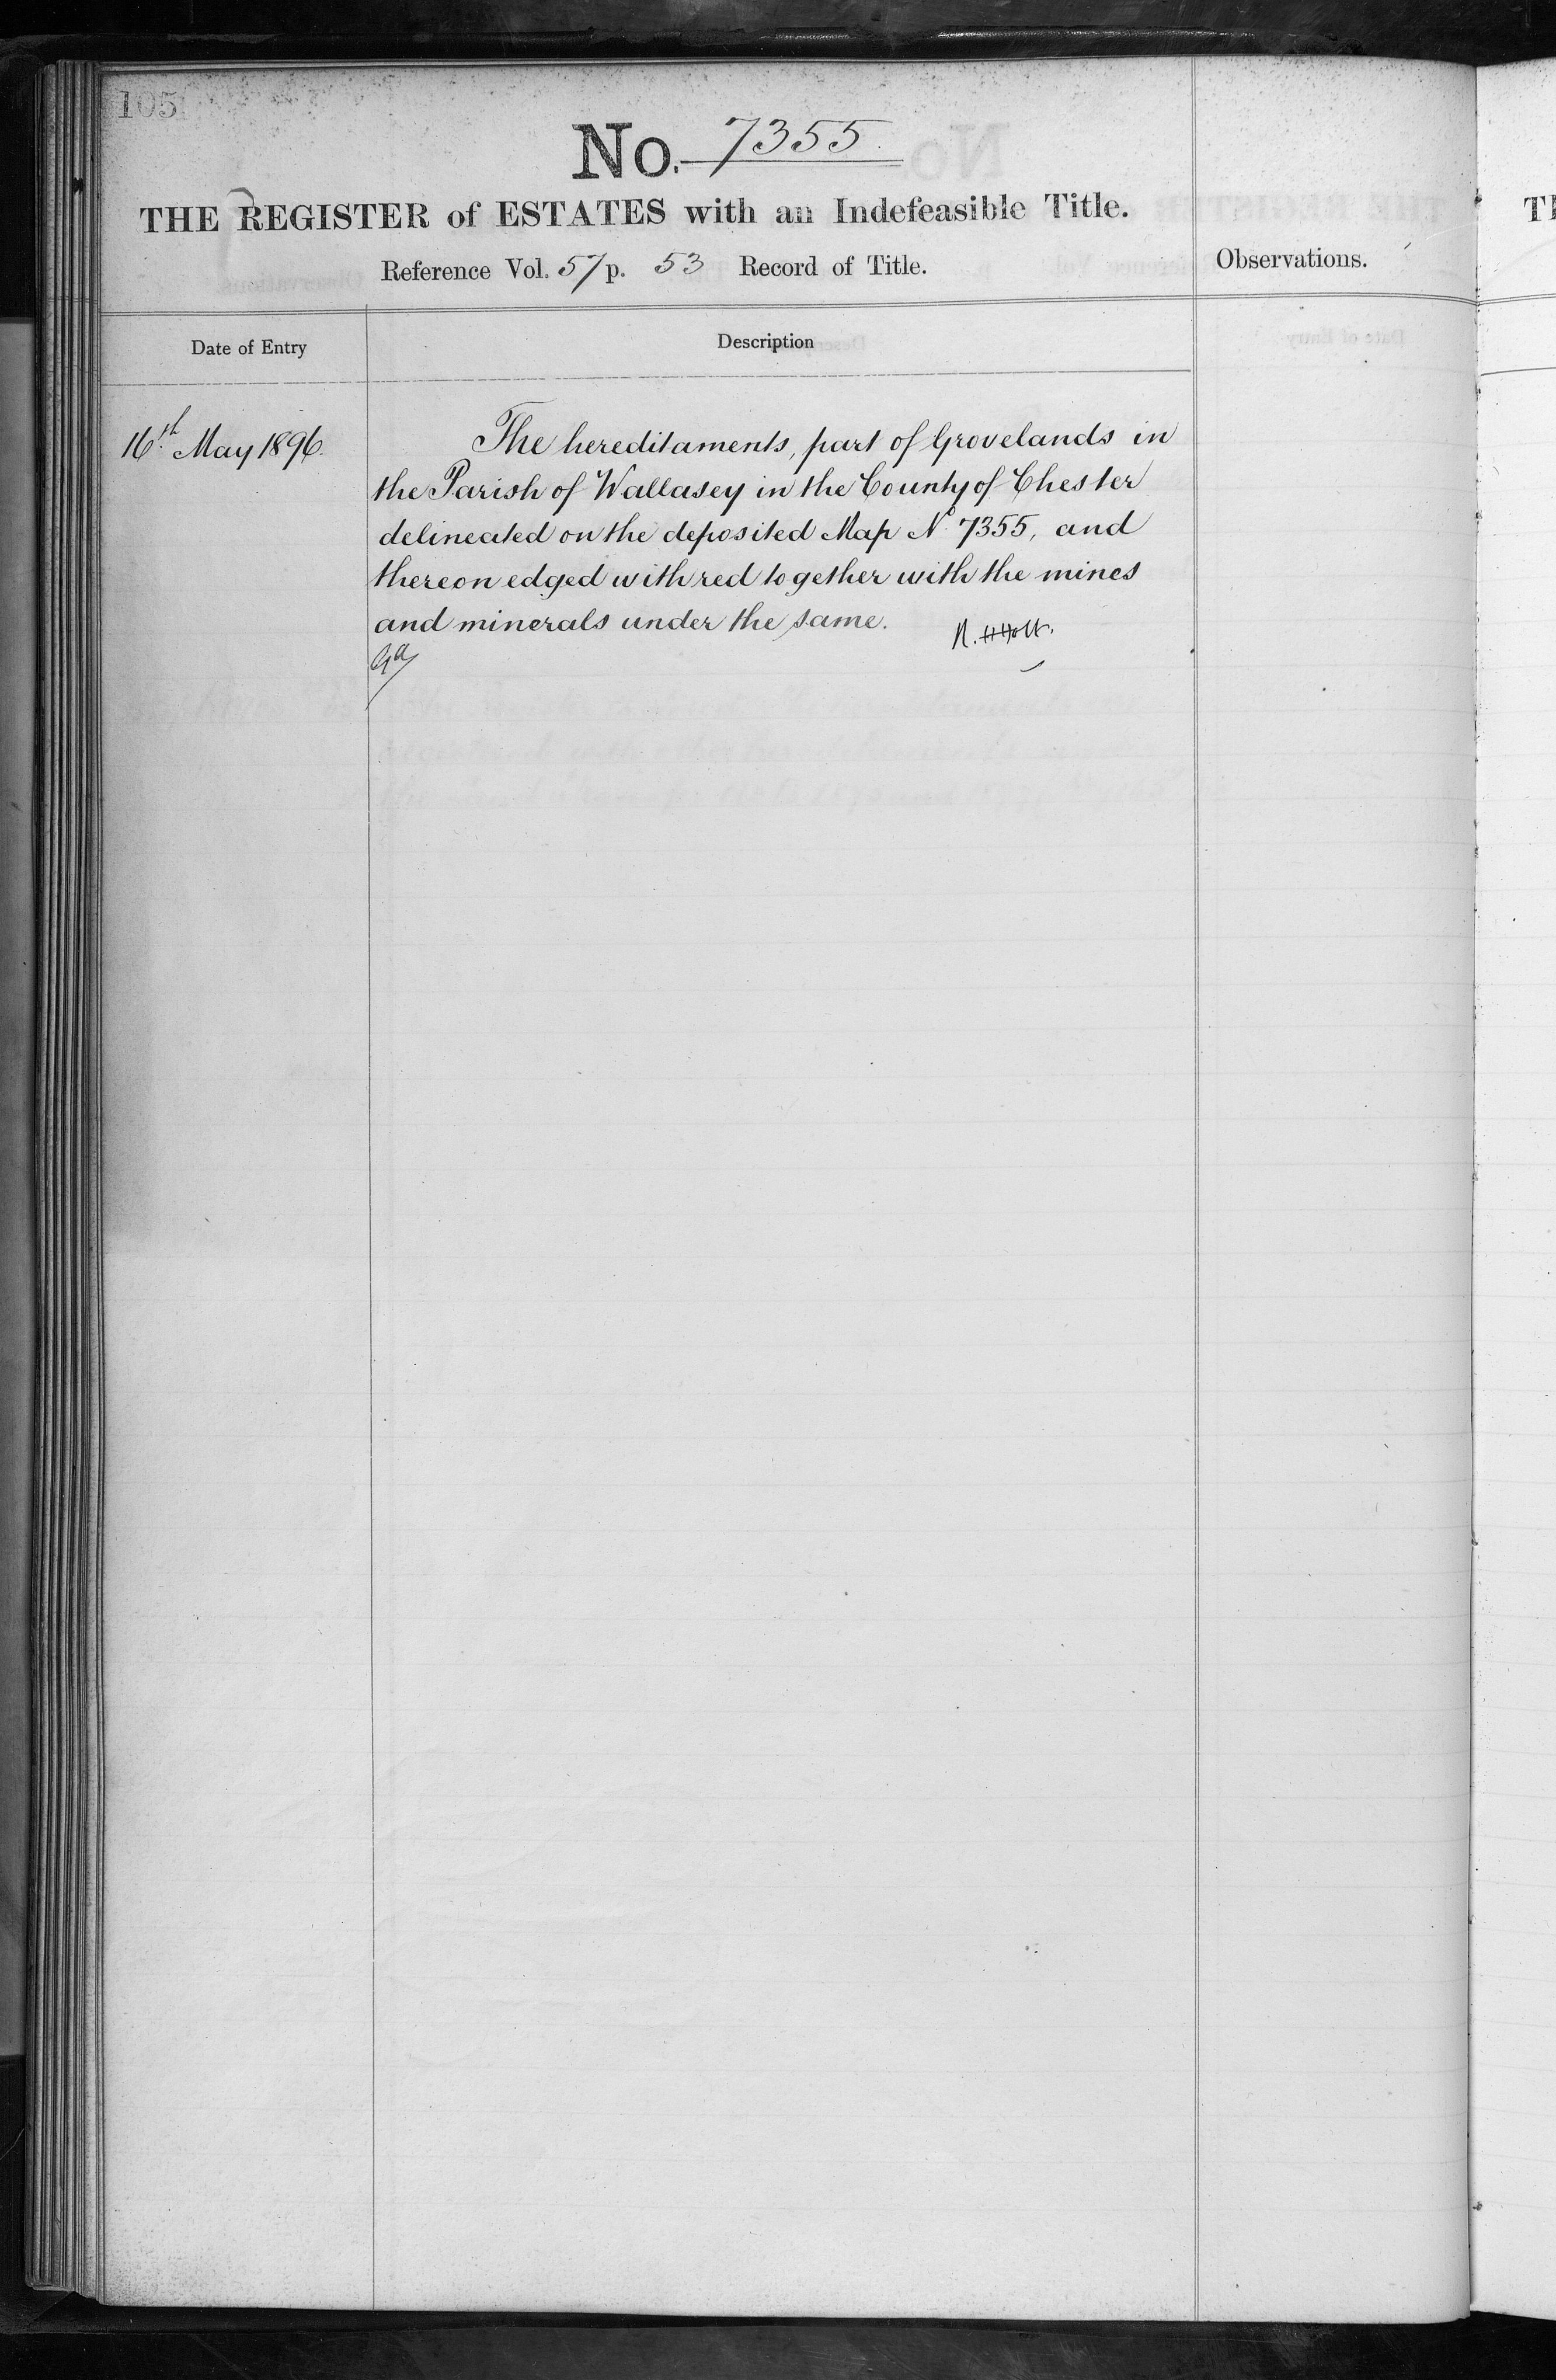 105
No. 7355
THE REGISTER of ESTATES with an Indefeasible Title.
Reference Vol. 57 p. 53 Record of Title.
Observations.
Date of Entry
Description
16th May 1896.
The hereditaments, part of Grovelands in
the Parish of Wallasey in the County of Chester
delineated on the deposited Map No 7355, and
thereon edged with red together with the mines
and minerals under the same.
R. H Holt.